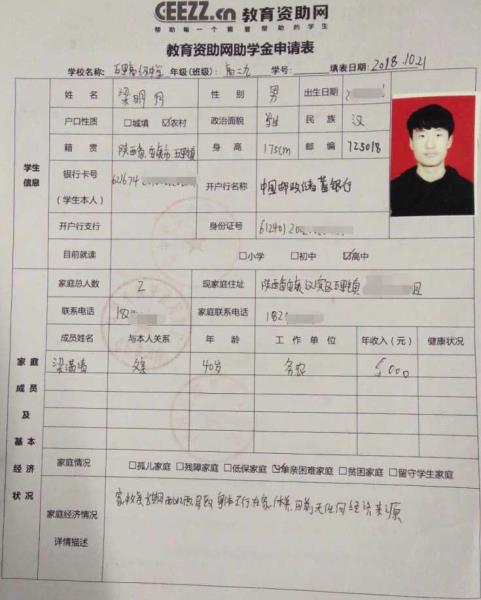 CEEZZ.cn 教育资助网
帮助每一个需要帮助的学生
教育资助网助学金申请表
学校名称: 五里高级中学 年级(班级): 高二九 学号: 填表日期: 2018.10.21
姓 名 梁明月 性 别 男 出生日期
户口性质 □城镇 ☑农村 政治面貌 学生 民 族 汉
籍 贯 陕西省安康市五里镇 身 高 175cm 邮 编 725018
学生信息
银行卡号 (学生本人) 621674 开户行名称 中国邮政储蓄银行
开户行支行 身份证号 612401 200
目前就读 □小学 □初中 ☑高中
家庭总人数 2 现家庭住址 陕西省安康汉滨区五里镇
联系电话 182 家庭联系电话 182
成员姓名 与本人关系 年 龄 工 作 单 位 年收入(元) 健康状况
梁满 父亲 40岁 务农 5000
家庭成员及基本经济状况
家庭情况 □孤儿家庭 □残障家庭 □低保家庭 ☑单亲困难家庭 □贫困家庭 □留守学生家庭
家庭经济情况详情描述
目前无任何经济来源